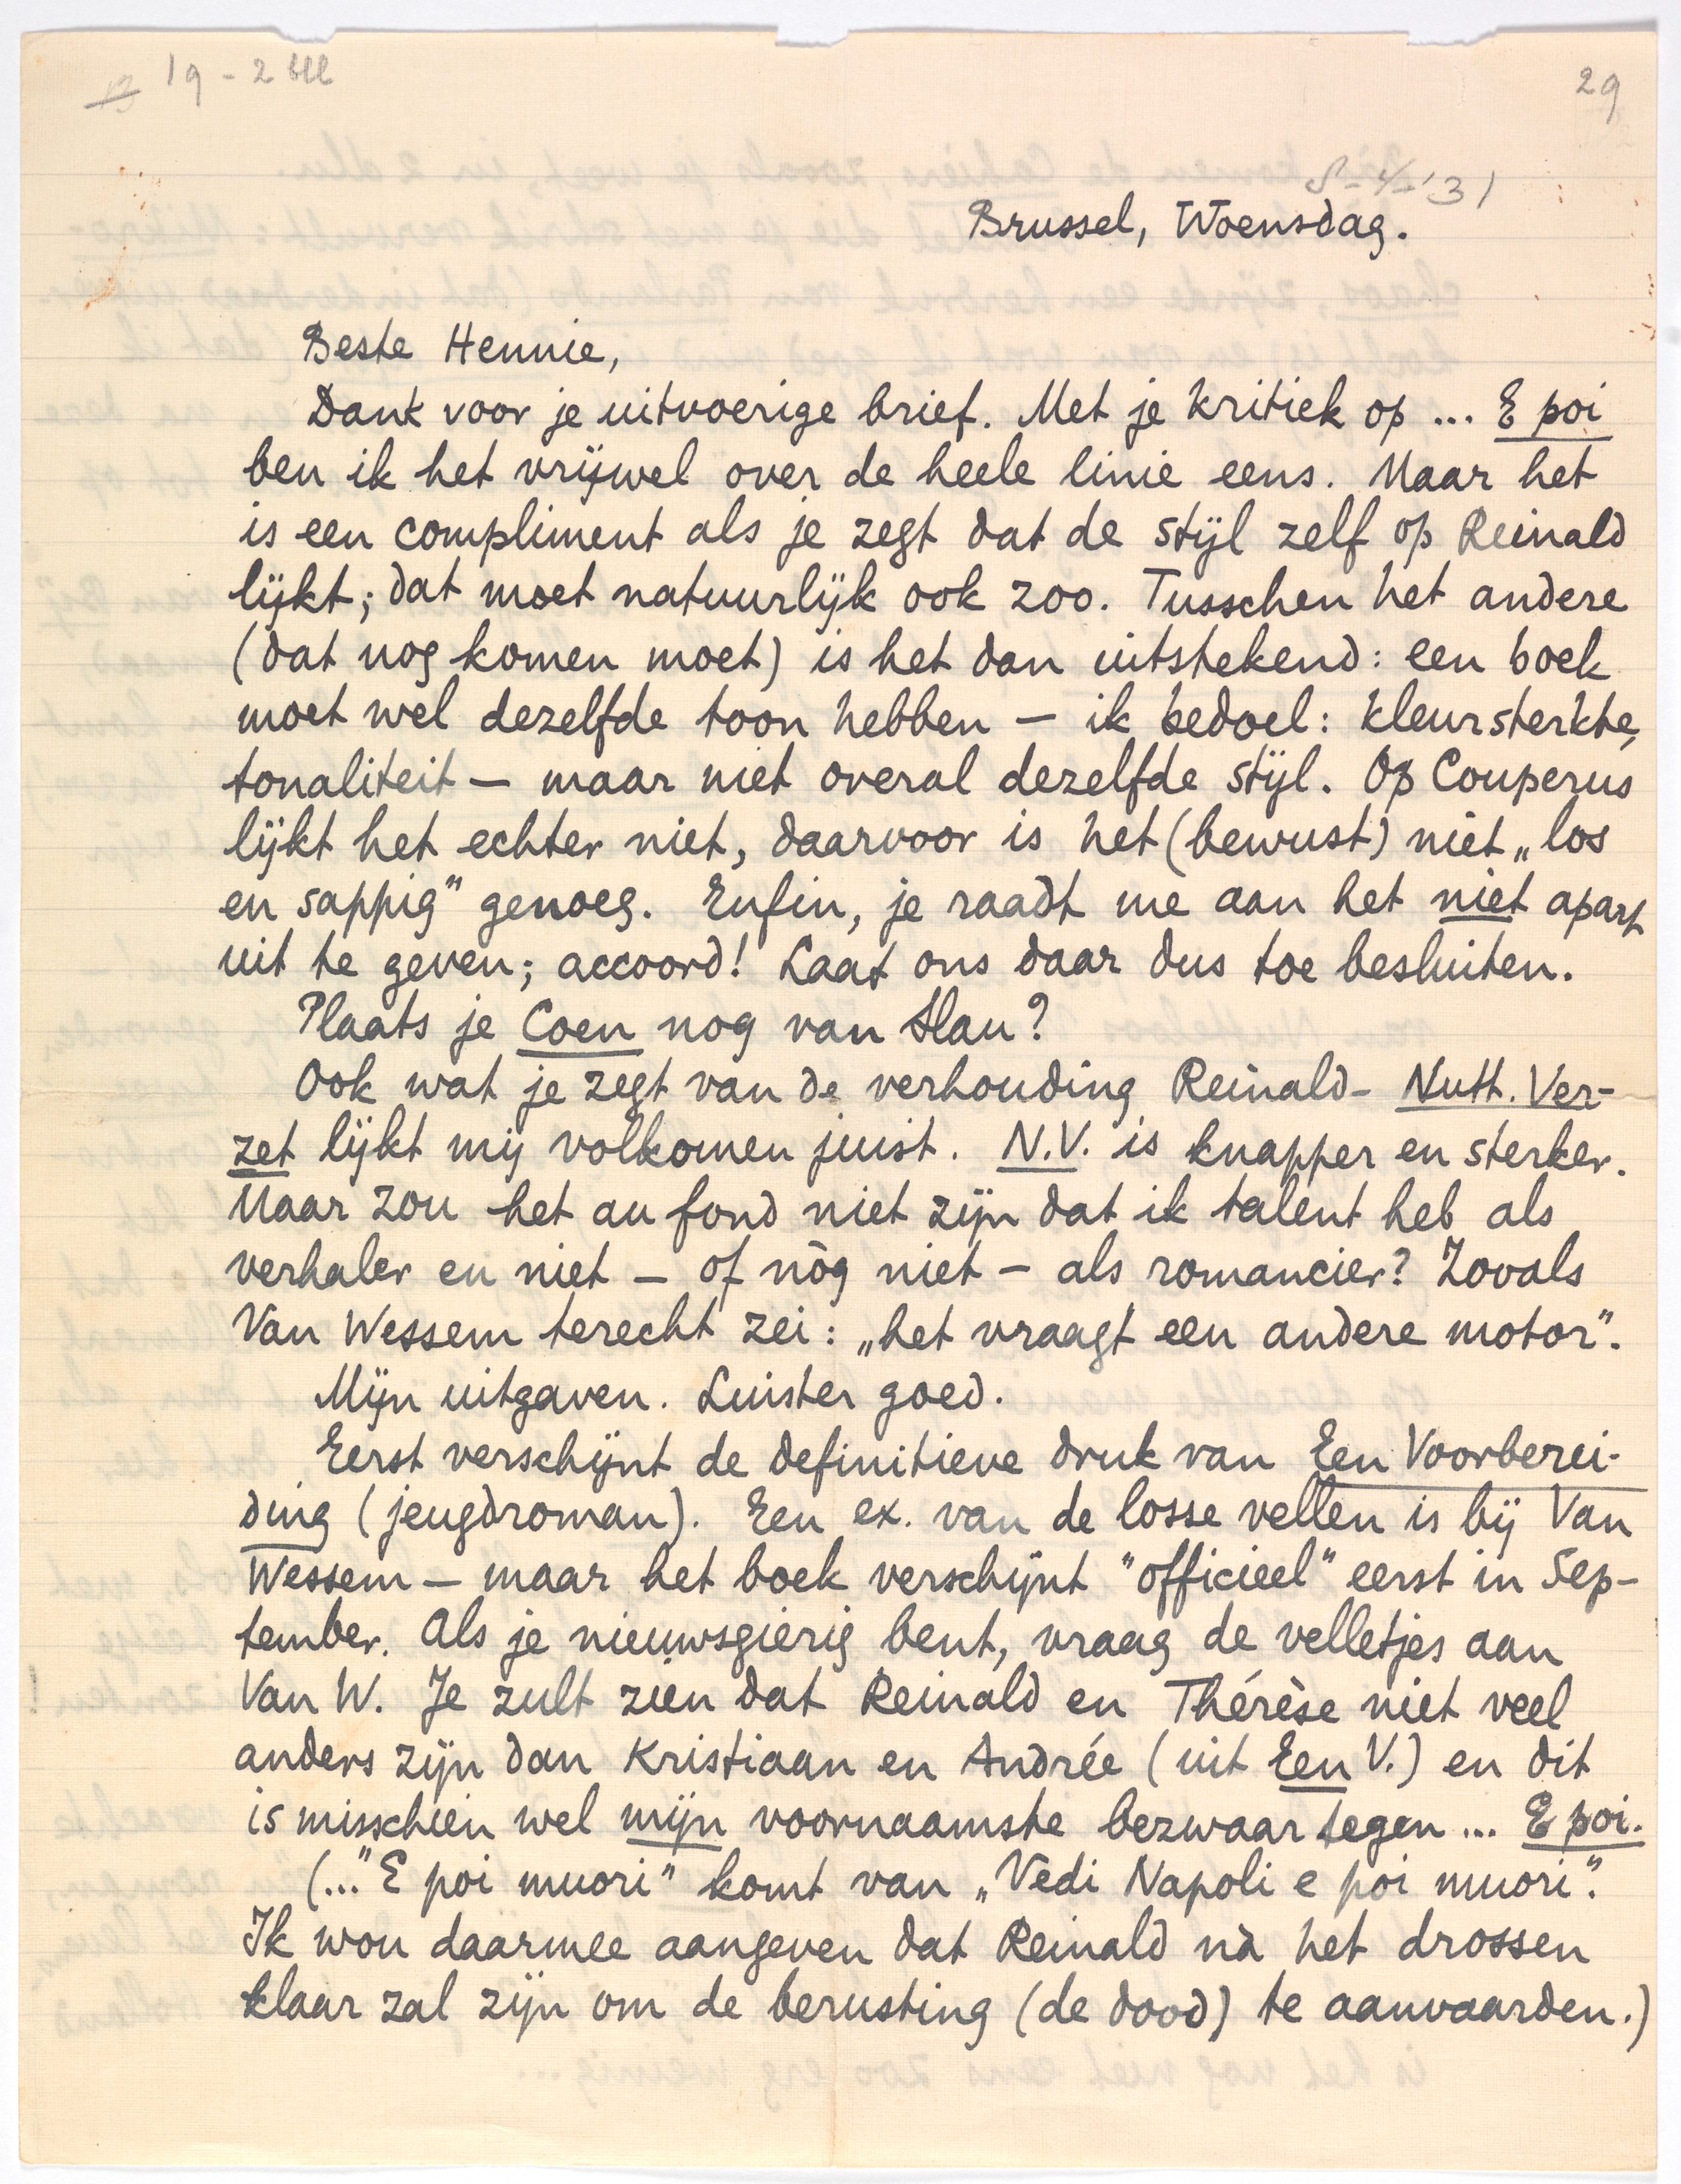 19 - 2 bll
29
8-4-'31
Brussel, Woensdag.
Beste Hennie,
Dank voor je uitvoerige brief. Met je kritiek op ... E poi
ben ik het vrijwel over de heele linie eens. Maar het
is een compliment als je zegt dat de stijl zelf op Reinald
lijkt; dat moet natuurlijk ook zoo. Tusschen het andere
(dat nog komen moet) is het dan uitstekend: een boek
moet wel dezelfde toon hebben — ik bedoel: kleursterkte,
tonaliteit — maar niet overal dezelfde stijl. Op Couperus
lijkt het echter niet, daarvoor is het (bewust) niet „los
en sappig" genoeg. Enfin, je raadt me aan het niet apart
uit te geven; accoord! Laat ons daar dus toe besluiten.
Plaats je Coen nog van Slau?
Ook wat je zegt van de verhouding Reinald - Nutt. Ver-
zet lijkt mij volkomen juist. N.V. is knapper en sterker.
Maar zou het au fond niet zijn dat ik talent heb als
verhaler en niet — of nòg niet — als romancier? Zooals
Van Wessem terecht zei: „het vraagt een andere motor".
Mijn uitgaven. Luister goed.
Eerst verschijnt de definitieve druk van Een Voorberei-
ding (jeugdroman). Een ex. van de losse vellen is bij Van
Wessem — maar het boek verschijnt "officieel" eerst in Sep-
tember. Als je nieuwsgierig bent, vraag de velletjes aan
Van W. Je zult zien dat Reinald en Thérèse niet veel
anders zijn dan Kristiaan en Andrée (uit Een V.) en dit
is misschien wel mijn voornaamste bezwaar tegen ... E poi.
(..."E poi muori" komt van „Vedi Napoli e poi muori".
Ik wou daarmee aangeven dat Reinald nà het drossen
klaar zal zijn om de berusting (de dood) te aanvaarden.)